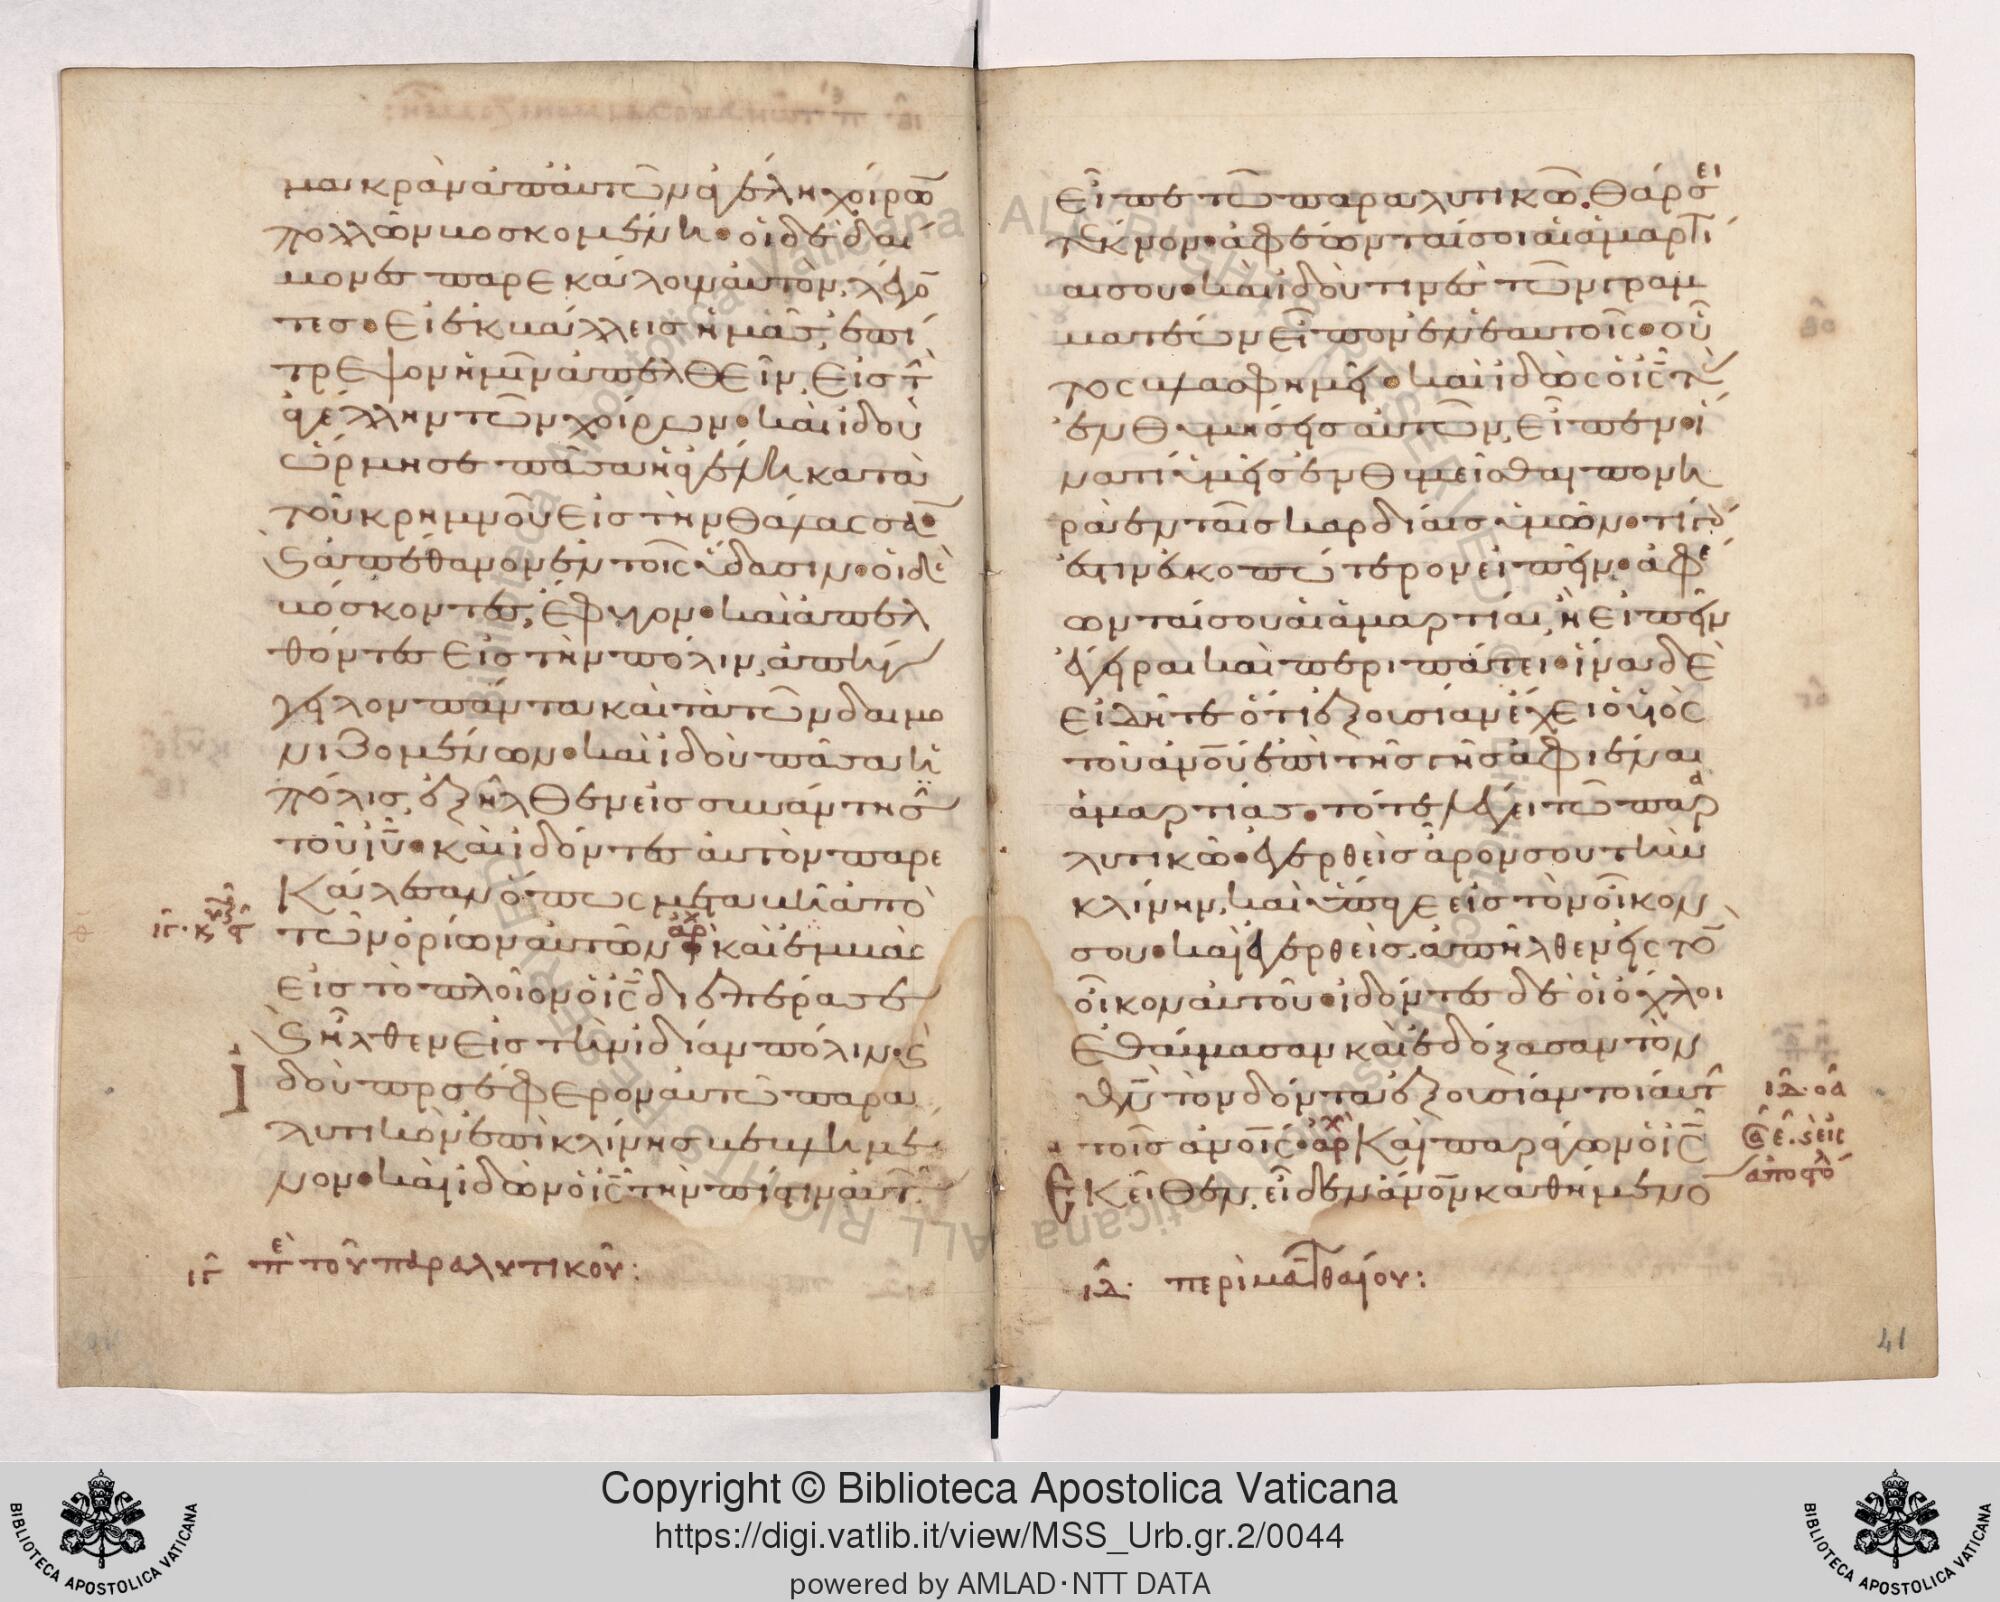 μακρὰν ἀπ' αὐτῶν ἀγέλη χοίρων
πολλῶν βοσκομένη· οἱ δὲ δαί
μονες παρεκάλουν αὐτὸν, λέγο
τες· εἰ ἐκβάλλεις ἡμᾶς, ἐπί
τρεψον ἡμῖν ἀπελθεῖν, εἰς τ
ἀγέλην τῶν χοίρων· καὶ ἰδοὺ
ὥρμησε πᾶσα ἡ ἀγέλη κατὰ
τοῦ κρημνοῦ εἰς τὴν θάλασσα
κ ἀπέθανον ἐν τοῖς ὕδασιν· οἱ δὲ
βόσκοντες, ἔφυγον· καὶ ἀπελ
θόντες εἰς τὴν πόλιν, ἀπήγ
γειλον πάντα καὶ τὰ τῶν δαιμο
νιζομένων· καὶ ἰδοὺ πᾶσα ἡ
πόλις, ἐξῆλθεν εἰς συνάντησ
τοῦ ιυ· καὶ ἰδόντες αὐτὸν παρε
κάλεσαν ὅπως μεταβῆ ἀπὸ
τῶν ὁρίων αὐτῶν· αρχ καὶ ἐμβὰς
εἰς τὸ πλοῖον ὁ ις διεπέρασε
κ ἦλθεν εἰς τὴν ἰδίαν πόλιν· κ
ἰδοὺ προσέφερον αὐτῶ παρα
λυτικὸν ἐπὶ κλίνης βεβλημέ
νον· καὶ ἰδὼν ὁ ις τὴν πίστιν αὐτ
ιγ πε τοῦ παραλυτικοῦ:
εἶπε τῶ παραλυτικῶ. θάρσει
τέκνον· ἀφέωνταί σοι αἱ ἁμαρτί
αι σου· καὶ ἰδού τινες τῶν γραμ
ματέων εἶπον ἐν ἑαυτοῖς· οὗ
τος βλασφημεῖ· καὶ ἰδὼς ὁ ις τὰς
ἐνθυμήσεις αὐτῶν, εἶπεν· ἱ
νατί ὑμεῖς ἐνθυμεῖσθαι πονη
ρὰ ἐν ταῖς καρδίαις ὑμῶν· τί γάρ
ἐστιν εὐκοπώτερον εἰπεῖν· ἀφέ
ωνταί σου αἱ ἁμαρτίαι, ἢ εἰπεῖν
ἔγειραι καὶ περιπάτει· ἵνα δὲ
εἰδῆτε ὅτι ἐξουσίαν ἔχει ὁ υἱὸς
τοῦ ανου ἐπὶ τῆς γῆς ἀφιέναι
ἁμαρτίας· τότε λέγει τῶ παρα
λυτικῶ· ἐγερθεὶς ἆρόν σου τὴν
κλίνην, καὶ ὕπαγε εἰς τὸν οἶκον
σου· καὶ ἐγερθεὶς ἀπῆλθεν εἰς τὸ
οἶκον αὐτοῦ· ἰδόντες δὲ οἱ ὄχλοι
ἐθαύμασαν καὶ ἐδόξασαν τὸν
θν τὸν δόντα ἐξουσίαν τοιαύτ
τοῖς ανοις· αρχ Καὶ παράγων ὁ ις
Εκεῖθεν, εἶδεν ανον καθήμενο
ιδ· οα
ιδ· περὶ ματθαίου:
41
Copyright © Biblioteca Apostolica Vaticana
https://digi.vatlib.it/view/MSS_Urb.gr.2/0044
powered by AMLAD·NTT DATA
BIBLIOTECA APOSTOLICA VATICANA
BIBLIOTECA APOSTOLICA VATICANA